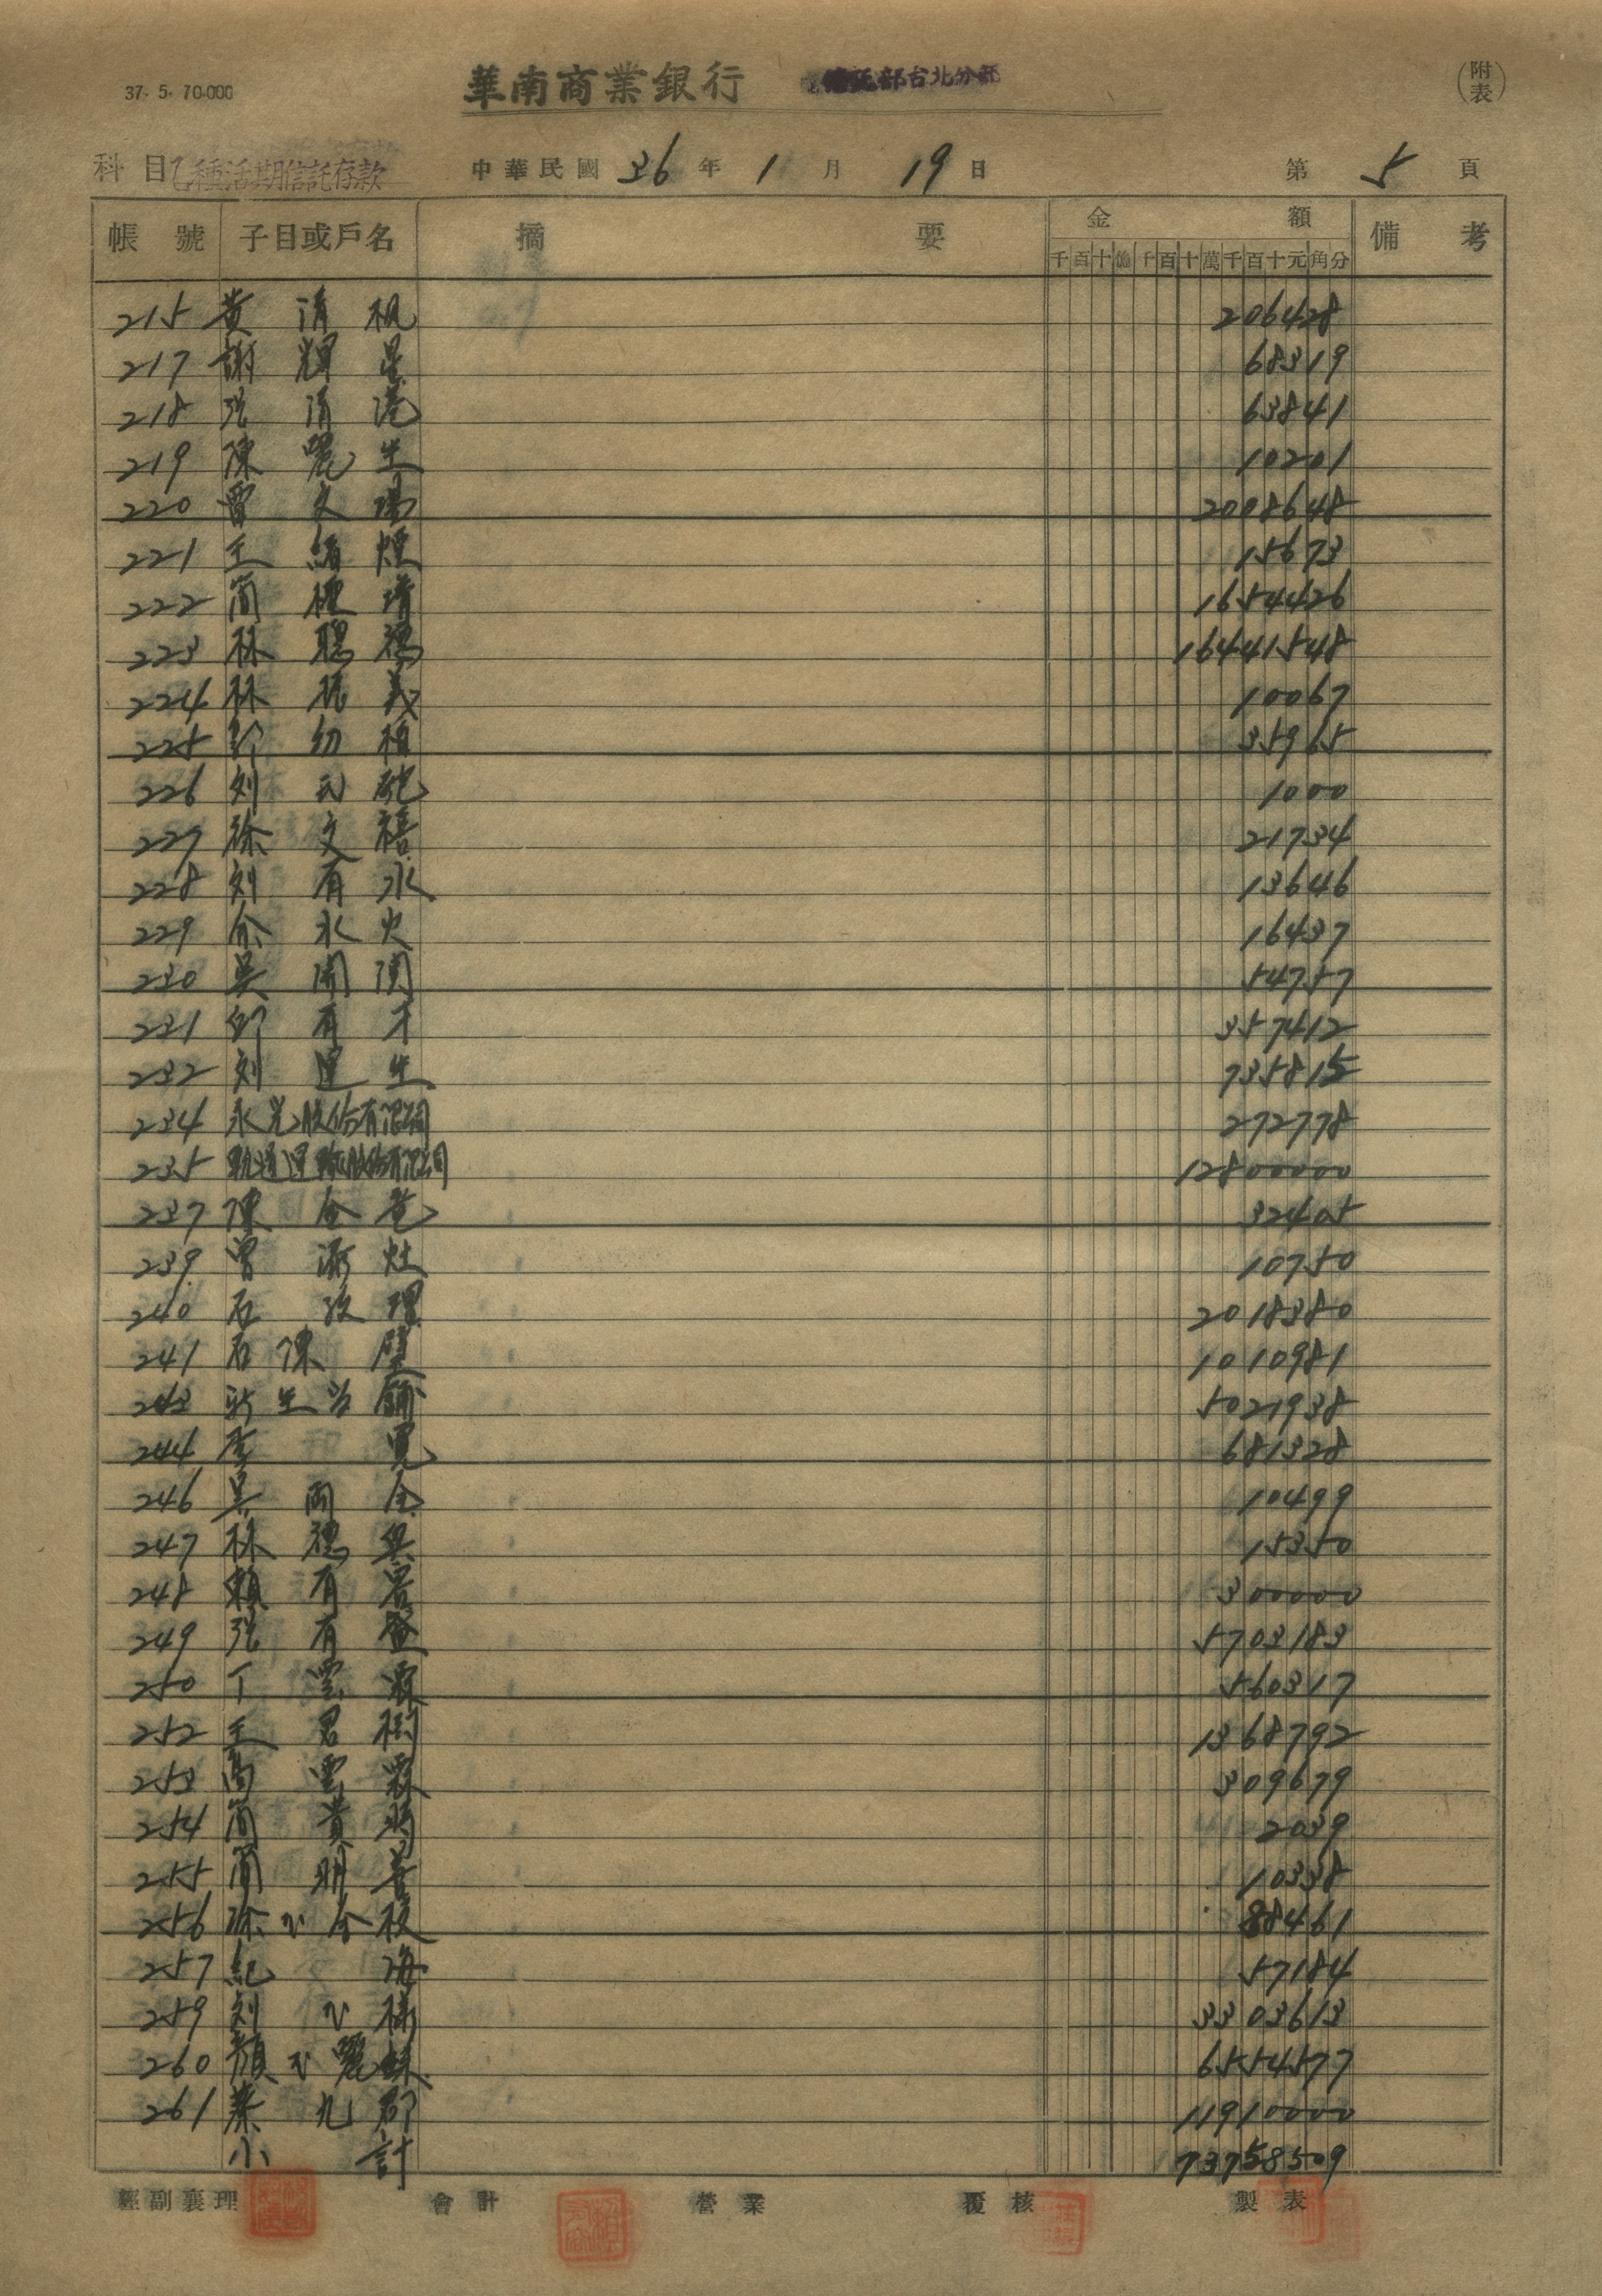 37. 5. 70.000
華南商業銀行 信託部台北分部
(附表)
科目 乙種活期信託存款 中華民國 36 年 1 月 19 日 第 5 頁
帳號 子目或戶名 摘要 金額 備考
千百十億千百十萬千百十元角分
215 黃清枧 206428
217 謝輝星 68319
218 張清港 63841
219 陳麗生 10201
220 曾文陽 2098648
221 王絹煙 15673
222 簡極清 1654426
223 林聰德 16441548
224 林 義 10067
225 幼 35965
226 刘 1000
227 徐文禧 21734
228 刘有水 13646
229 余水火 16437
230 吳開 54757
231 有才 357412
232 刘運生 735815
234 永光股份有限公司 272778
235 軌道運輸股份有限公司 12800000
237 陳金 32405
239 曾 灶 10750
240 石 理 2018380
241 石陳 1010981
243 新生当舖 5021938
244 李 寬 681328
246 吳両全 10499
247 林德興 15350
248 賴有 300000
249 張有盛 5703183
250 丁雲霖 560317
252 王君樹 1368792
253 高雲霖 309679
254 簡貴 2039
255 簡明善 10338
256 徐氏金枝 88461
257 紀 海 57184
259 刘氏様 3303613
260 顏氏麗 6554577
261 蔡九郎 11910000
小計 73758509
經副襄理 會計 營業 覆核 製表